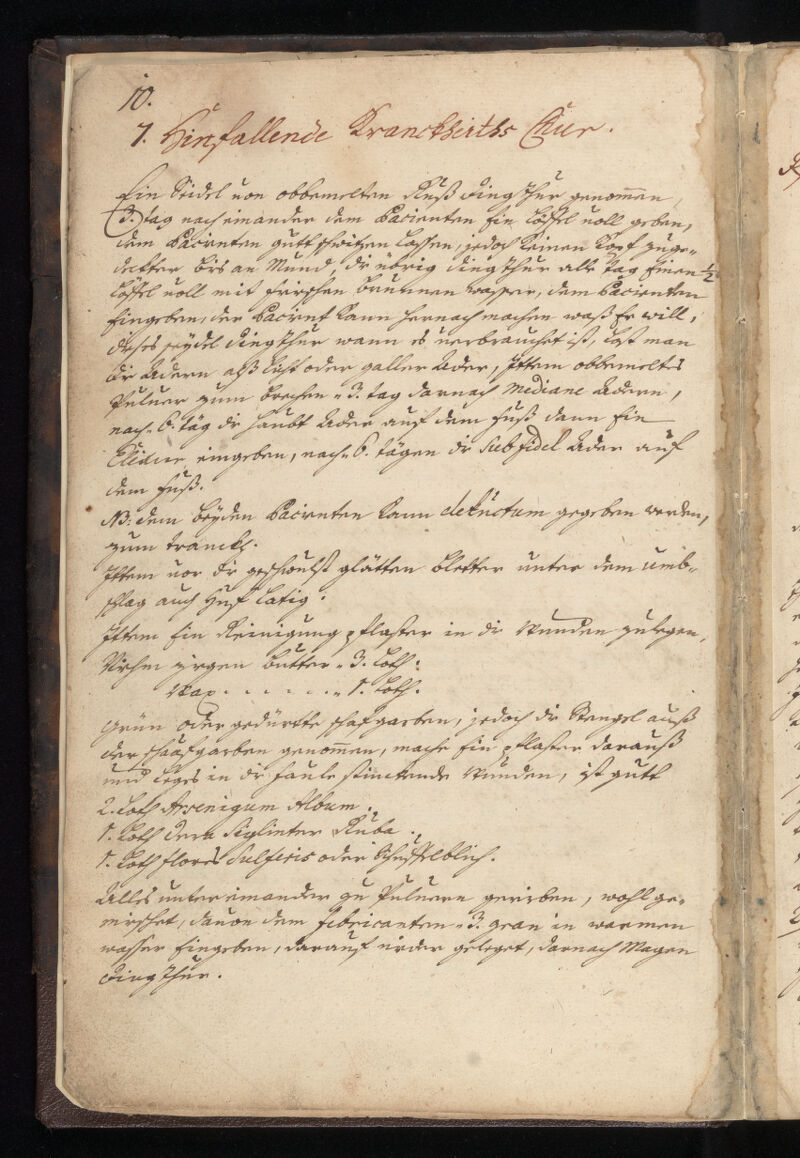 10.
7. Hinfallende Kranckheiths Chur.
Ein Seidel von obbemelten Ruß Dingthur genommen,
3. tag nach einander dem Pacienten Ein Löffel voll geben,
dem Pacienten gutt schwitzen lassen, jedoch keinen Kopf zuge-
deckter bis an Mund, die übrig Dingthur alle tag Einen ½
Löffel voll mit frischen brunnen wasser, dem Pacienten
Eingeben, der Pacient kann hernach machen waß Er will,
dieses seydel Dingthur wann es verbrauchet ist, last man
die Adern alß licht oder galler Ader, Ittem obbemeltes
Pulver zum brechen, 3. tag darnach Mediane Adern,
nach 6. täg die Haubt Ader auf dem Fuß dann Ein
Clistir eingeben, nach 6. tägen die Subfidel Ader auf
dem Fuß.
NB: dem beyden Pacienten kann decuctum gegeben werden,
zum tranckh.
Ittem vor die geschwulst glätten bletter unter dem umb-
schlag auch Huf latig.
Ittem Ein Reinigung pflaster in die Wunden zulegen,
Nehm jrgen butter 3. Loth:
Wax . . . . . . 1. Loth.
Grün oder gedürrte schafgarben, jedoch die Stengel auß
der schaafgarben genommen, mache Ein pflaster darauß
und leges in die faule stinckende Wunden, ist gutt
2. Loth Arsenigum Album.
1. Loth Dera Siglinter Ruba.
1. Loth flores Sulferis oder
Alles unter einander zu Pulvern gerieben, wohl ge-
mischet, davon dem Febricanten 3. gran in warmen
wasser Eingeben, darauf nider geleget, darnach Magen
Dingthur.